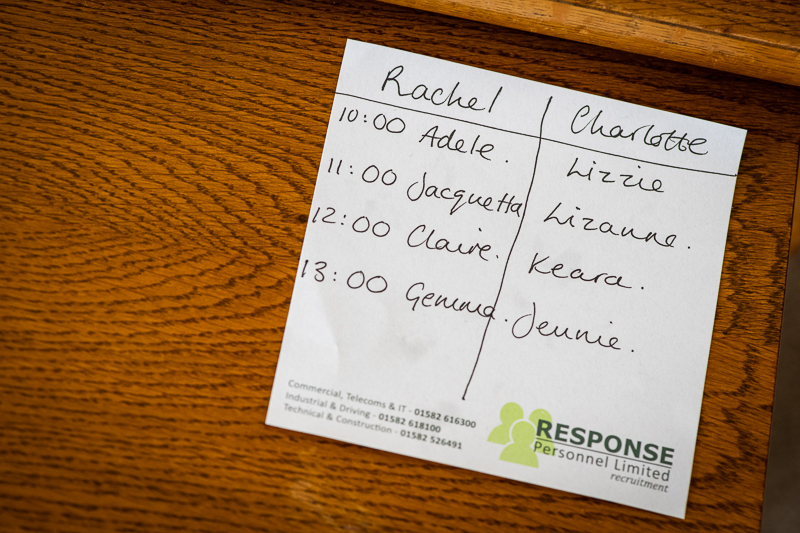 Rachel Charlotte
10:00 Adele. Lizzie
11:00 Jacquetta Lizanne.
12:00 Claire. Keara.
13:00 Gemma. Jennie.
Commercial, Telecoms & IT - 01582 616300
Industrial & Driving - 01582 618100
Technical & Construction - 01582 526491
RESPONSE
Personnel Limited
recruitment